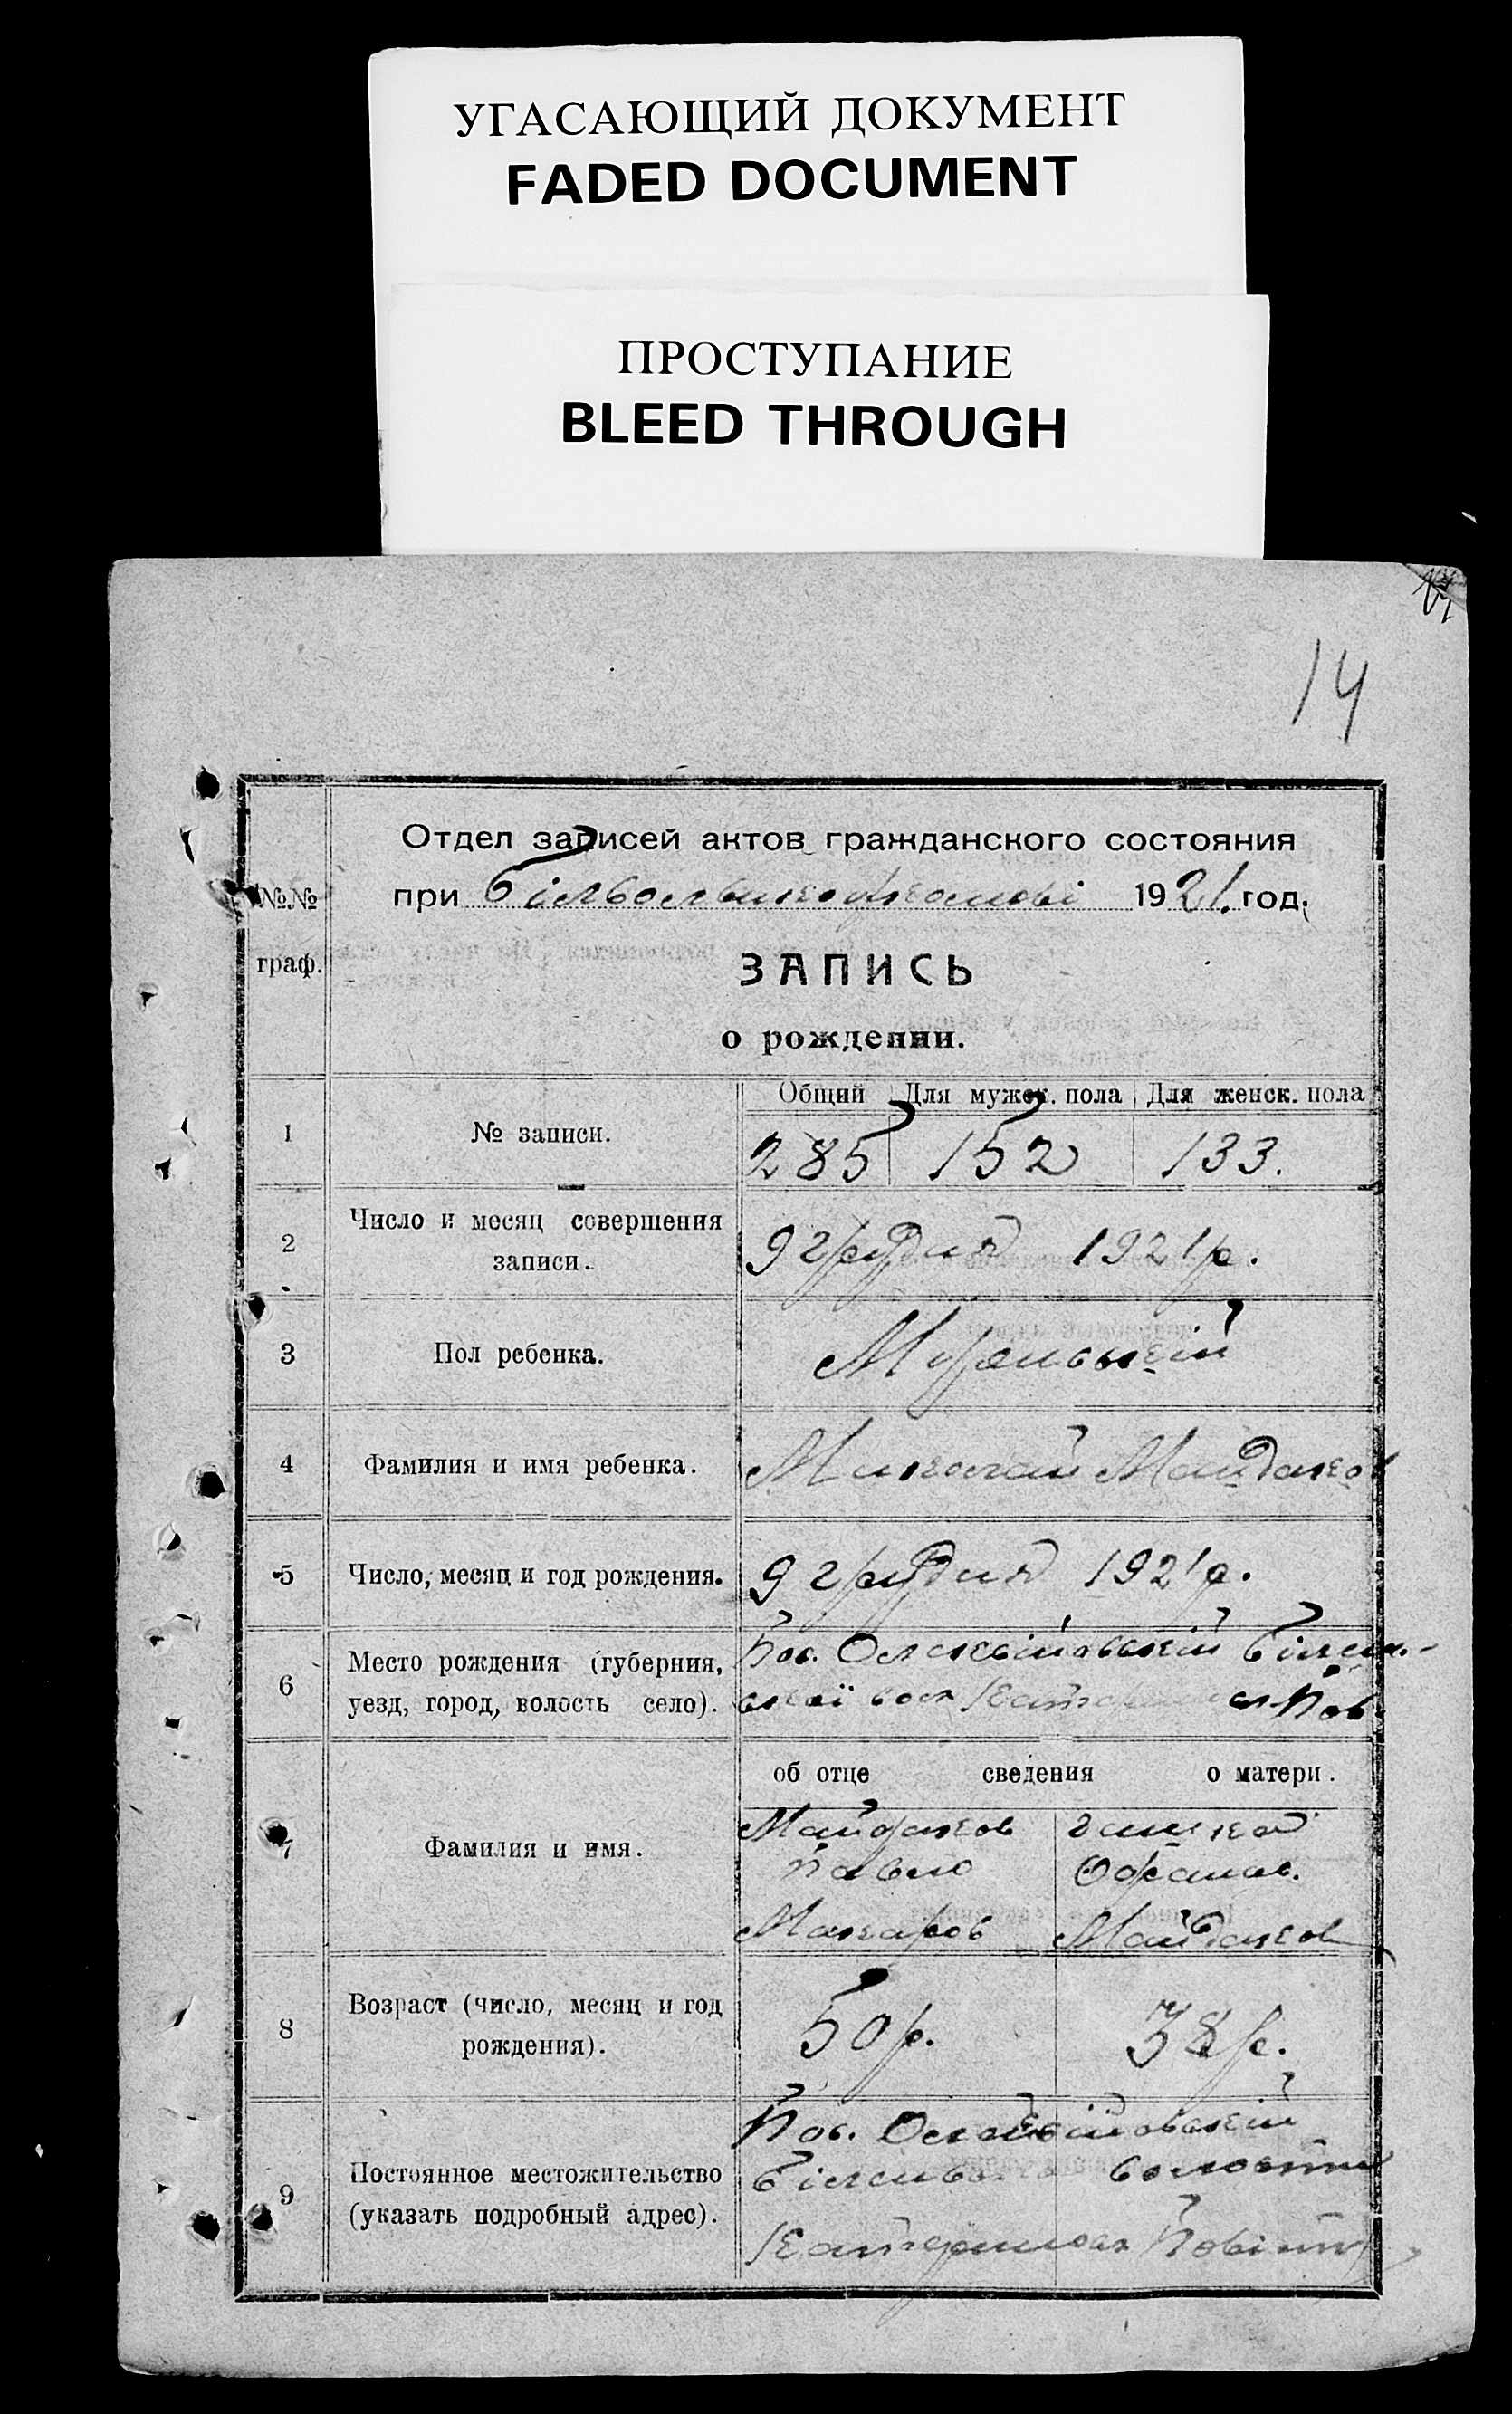 УГАСАЮЩИЙ ДОКУМЕНТ
FADED DOCUMENT
ПРОСТУПАНИЕ
BLEED THROUGH
14
Отдел записей актов гражданского состояния
№№ при 1921. год.
граф.
ЗАПИСЬ
о рождении.
Общий Для мужск. пола Для женск. пола
1 № записи. 285 152 133.
2 Число и месяц совершения
записи. 9 грудня 1921 р.
3 Пол ребенка.
4 Фамилия и имя ребенка. Миколай Майданов
5 Число, месяц и год рождения. 9 грудня 1921 р.
6 Место рождения (губерния,
уезд, город, волость село). Пов.
об отце сведения о матери.
Майданов
7 Фамилия и имя. Павло
Макаров Майданов
8 Возраст (число, месяц и год
рождения). 50 р. 38 р.
9 Постоянное местожительство волости
(указать подробный адрес).